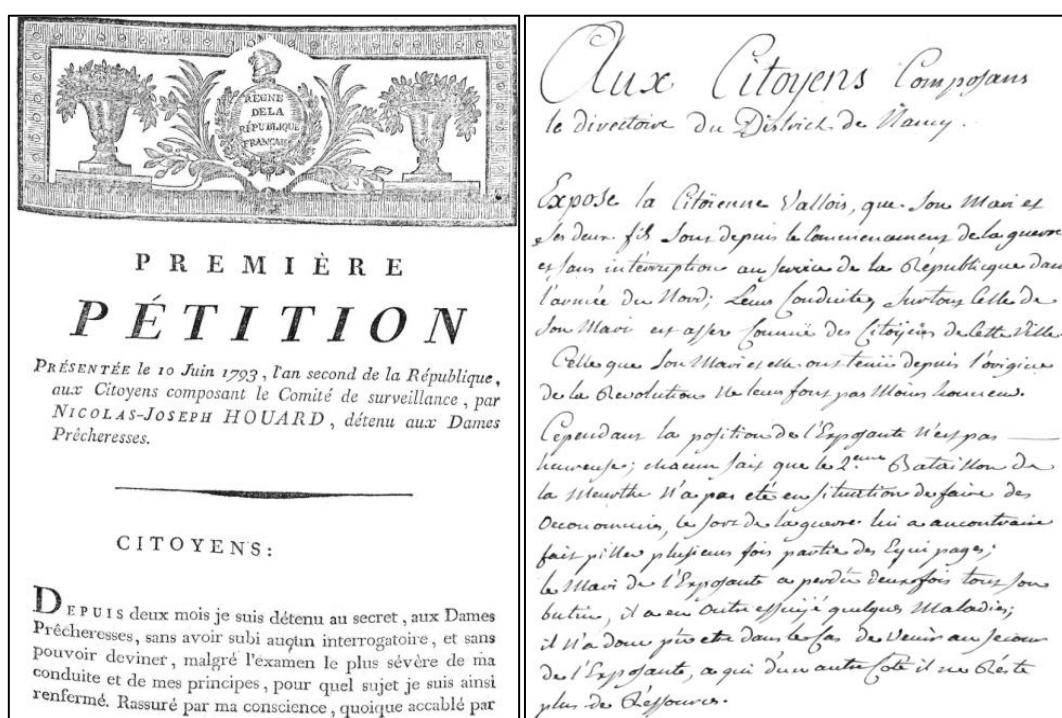 RÈGNE
DE LA
RÉPUBLIQUE
FRANÇAISE
PREMIÈRE
PÉTITION
PRÉSENTÉE le 10 Juin 1793, l'an second de la République,
aux Citoyens composant le Comité de surveillance, par
NICOLAS-JOSEPH HOUARD, détenu aux Dames
Prêcheresses.
CITOYENS:
DEPUIS deux mois je suis détenu au secret, aux Dames
Prêcheresses, sans avoir subi auçun interrogatoire, et sans
pouvoir deviner, malgré l'examen le plus sévère de ma
conduite et de mes principes, pour quel sujet je suis ainsi
renfermé. Rassuré par ma conscience, quoique accablé par
Aux Citoyens Composans
le directoire du District de Nancy.
Expose la Citöienne Vallois, que Son Mari et
Ses deux fils Sont depuis le Commencement de la guerre
et sans intérruption au service de la République dans
l'armée du Nord; Leurs Conduites, Surtout Celle de
Son Mari est assez Connuë des Citöyens de Cette Ville
Celle que Son Mari et elle ont tenuë depuis l'origine
de la Revolution ne leur font pas Moins honneur.
Cependant la position de l'Exposante N'est pas
heureuse; chacun sait que le 2.eme Bataillon de
la Meurthe N'a pas eté en situation de faire des
Oeconomies, le sort de la guerre lui a au contraire
fait piller plusieurs fois partie des Equipages;
le Mari de l'Exposante a perdu deux fois tout son
butin, il a en Outre essuyé quelques Maladies;
il N'a donc pû etre dans le Cas de Venir au secours
de l'Exposante, a qui d'un autre Coté il ne Réste
plus de Réssources.